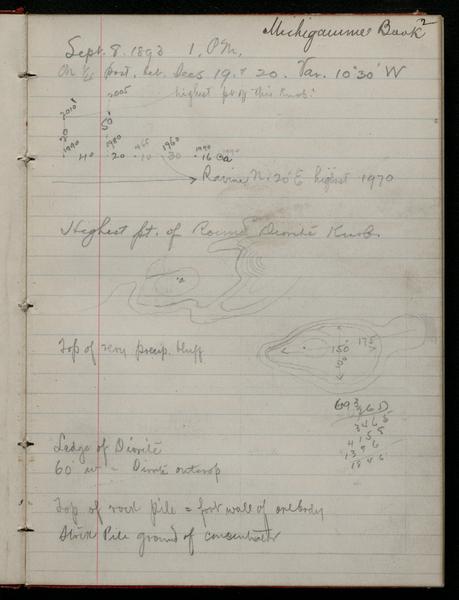 Michigamme Book 2
Sept. 8. 1893 1. P.M.
N ¼ post. bet. Secs 19 & 20. Var. 10°30' W
2005 highest pt of this Knob.
2010
50
20
1990 1980 1965 1960 1990 1990
40 20 10 30 16
Ravine N. 20° E highest 1970
Highest pt. of Round Diorite Knob.
Top of very precip. bluff
150 175
3465
4155
1386
Ledge of Diorite
60 - Diorite outcrop
Top of rock pile = foot wall of orebody
Pile ground of concentrator